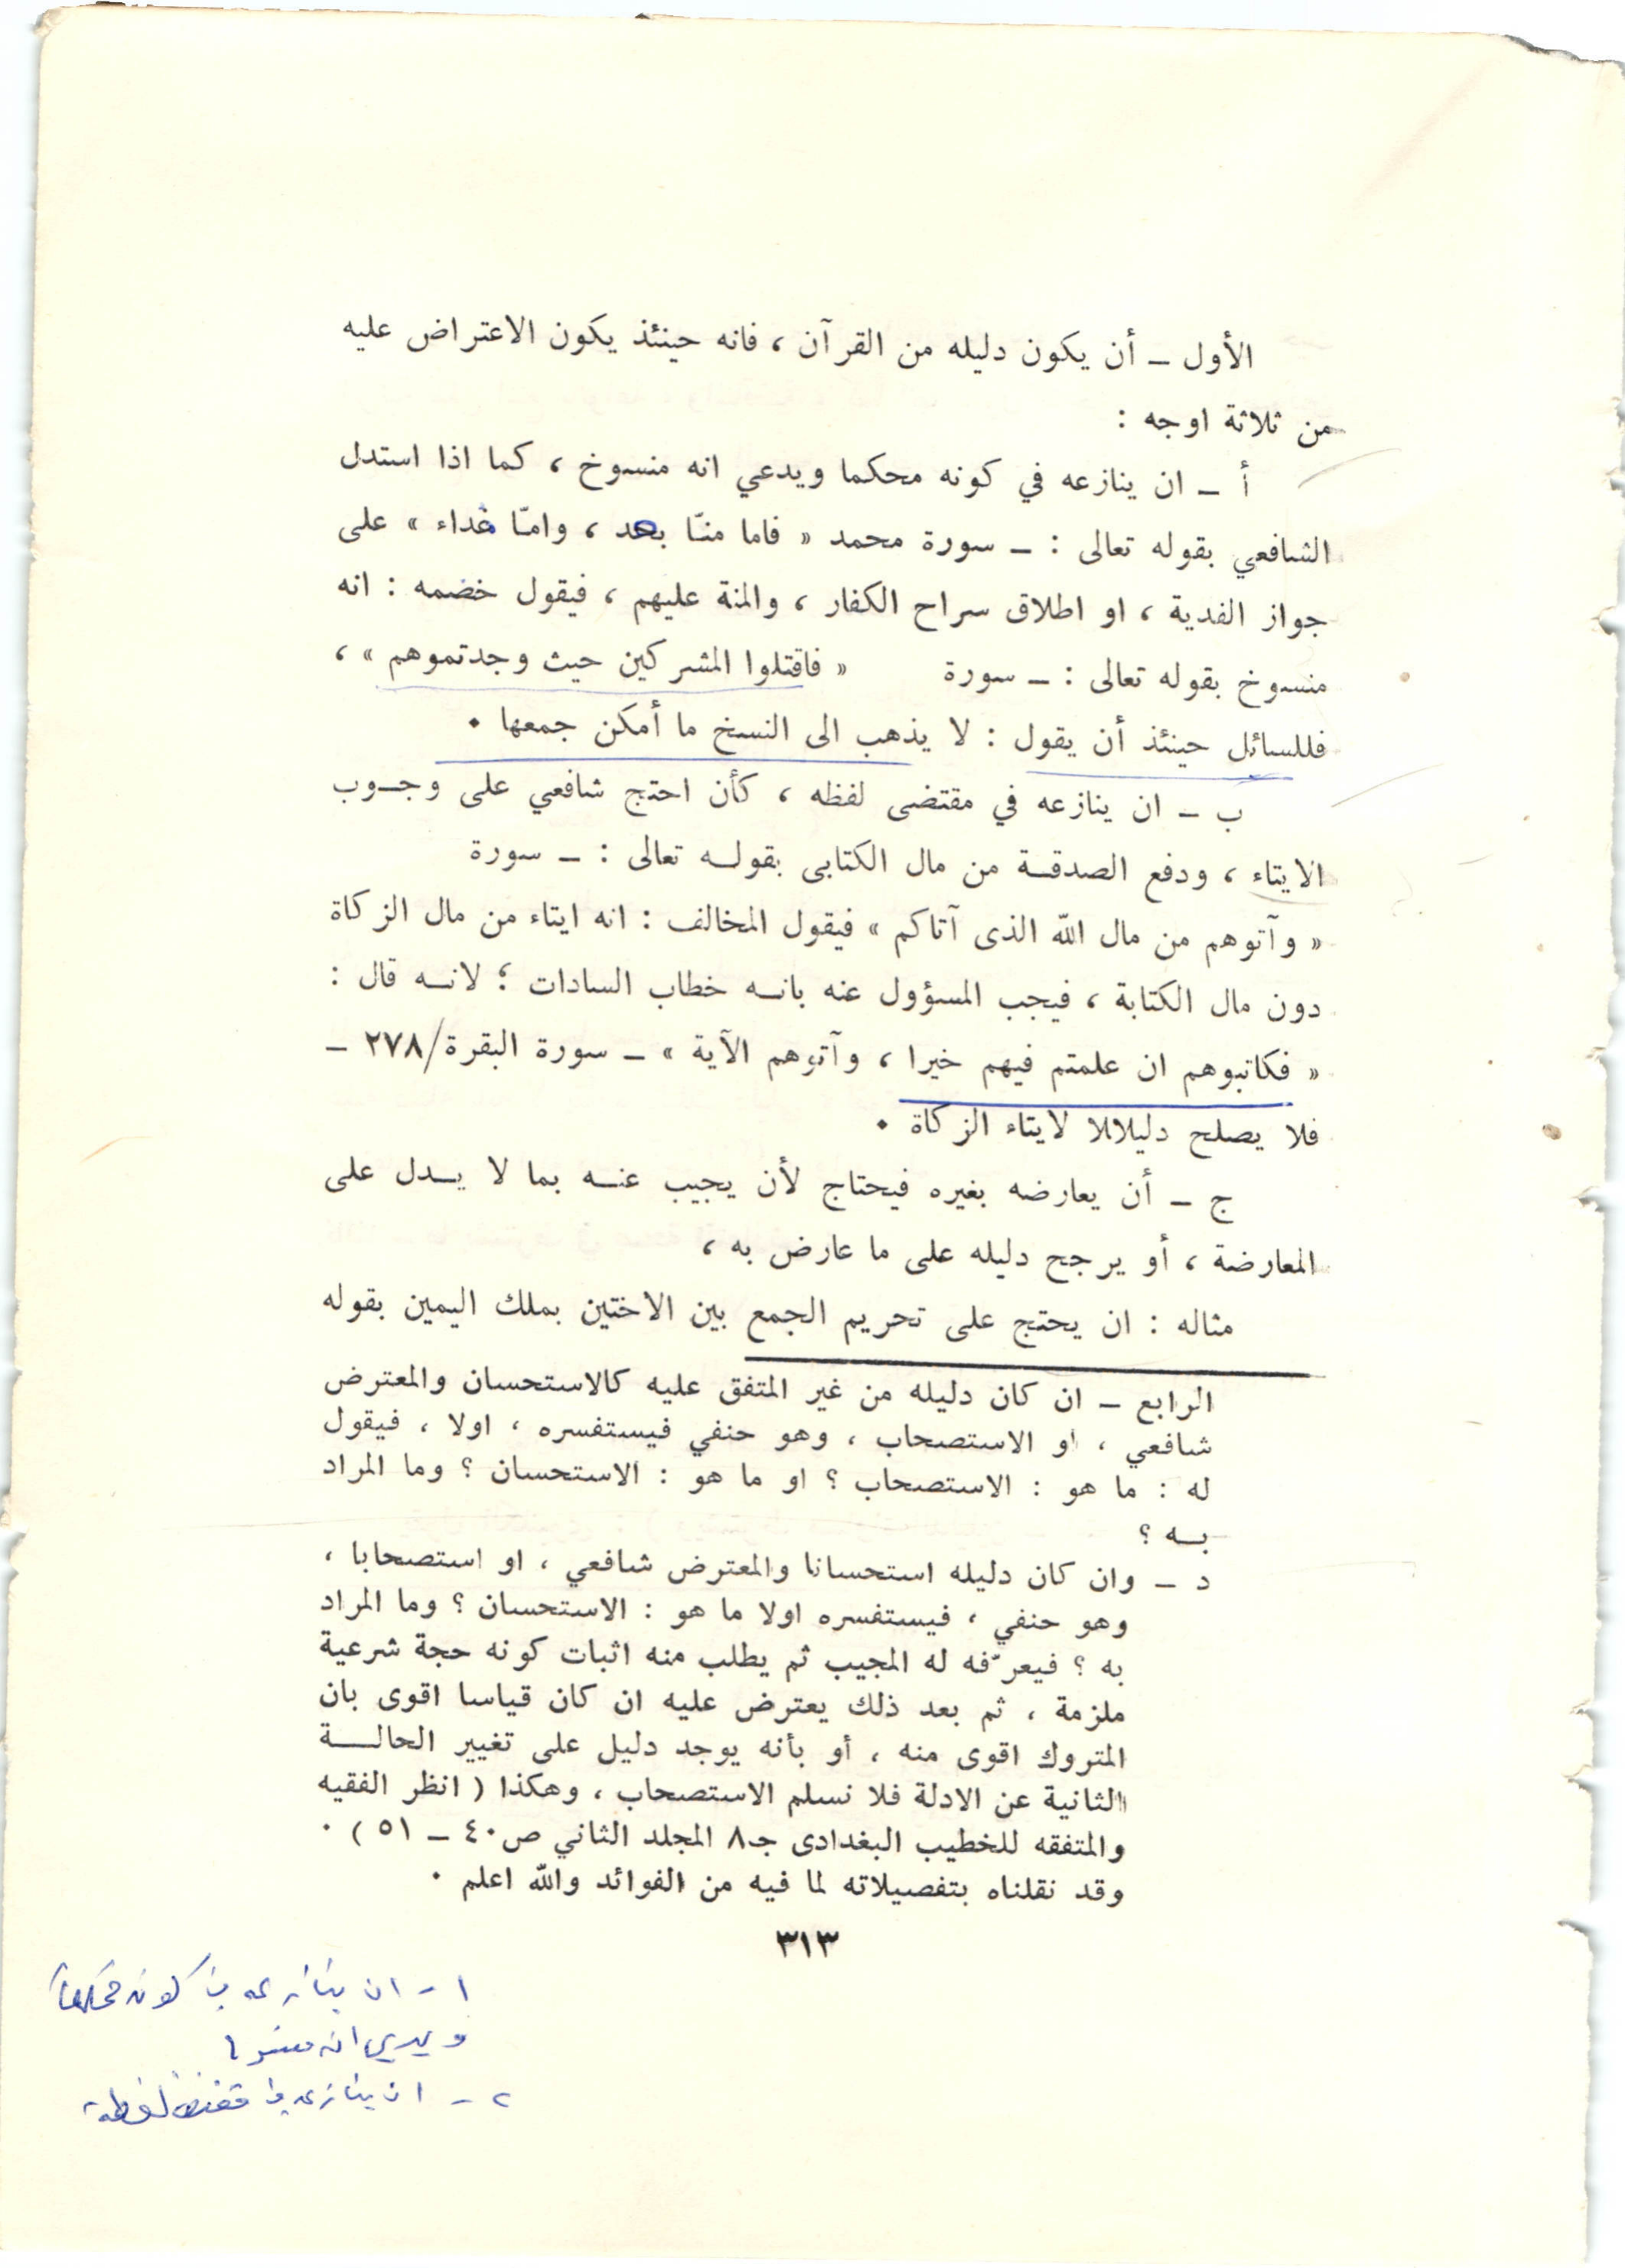 الأول ــ أن يكون دليله من القرآن ، فانه حينئذ يكون الاعتراض عليه
من ثلاثة اوجه :
أ ــ ان ينازعه في كونه محكما ويدعي انه منسوخ ، كما اذا استدل
الشافعي بقوله تعالى : ــ سورة محمد « فاما منّا بعد ، وامّا فداء » على
جواز الفدية ، او اطلاق سراح الكفار ، والمنة عليهم ، فيقول خضمه : انه
منسوخ بقوله تعالى : ــ سورة « فاقتلوا المشركين حيث وجدتموهم » ،
فللسائل حينئذ أن يقول : لا يذهب الى النسخ ما أمكن جمعها ٠
ب ــ ان ينازعه في مقتضى لفظه ، كأن احتج شافعي على وجـوب
الايتاء ، ودفع الصدقـة من مال الكتابى بقولـه تعالى : ــ سورة
« وآتوهم من مال الله الذى آتاكم » فيقول المخالف : انه ايتاء من مال الزكاة
دون مال الكتابة ، فيجب المسؤول عنه بانـه خطاب السادات ؛ لانـه قال :
« فكاتبوهم ان علمتم فيهم خيرا ، وآتوهم الآية » ــ سورة البقرة/٢٧٨ ــ
فلا يصلح دليلالا لايتاء الزكاة ٠
ج ــ أن يعارضه بغيره فيحتاج لأن يجيب عنـه بما لا يـدل على
المعارضة ، أو يرجح دليله على ما عارض به ،
مثاله : ان يحتج على تحريم الجمع بين الاختين بملك اليمين بقوله
الرابع ــ ان كان دليله من غير المتفق عليه كالاستحسان والمعترض
شافعي ، او الاستصحاب ، وهو حنفي فيستفسره ، اولا ، فيقول
له : ما هو : الاستصحاب ؟ او ما هو : الاستحسان ؟ وما المراد
بـه ؟
د ــ وان كان دليله استحسانا والمعترض شافعي ، او استصحابا ،
وهو حنفي ، فيستفسره اولا ما هو : الاستحسان ؟ وما المراد
به ؟ فيعرّفه له المجيب ثم يطلب منه اثبات كونه حجة شرعية
ملزمة ، ثم بعد ذلك يعترض عليه ان كان قياسا اقوى بان
المتروك اقوى منه ، أو بأنه يوجد دليل على تغيير الحالـــة
الثانية عن الادلة فلا نسلم الاستصحاب ، وهكذا ( انظر الفقيه
والمتفقه للخطيب البغدادى جـ٨ المجلد الثاني ص٤٠ ــ ٥١ ) ٠
وقد نقلناه بتفصيلاته لما فيه من الفوائد والله اعلم ٠
٣١٣
١ - ان ينازعه في كونه محكما
ويدعي انه
٢ - ان ينازعه في لفظه